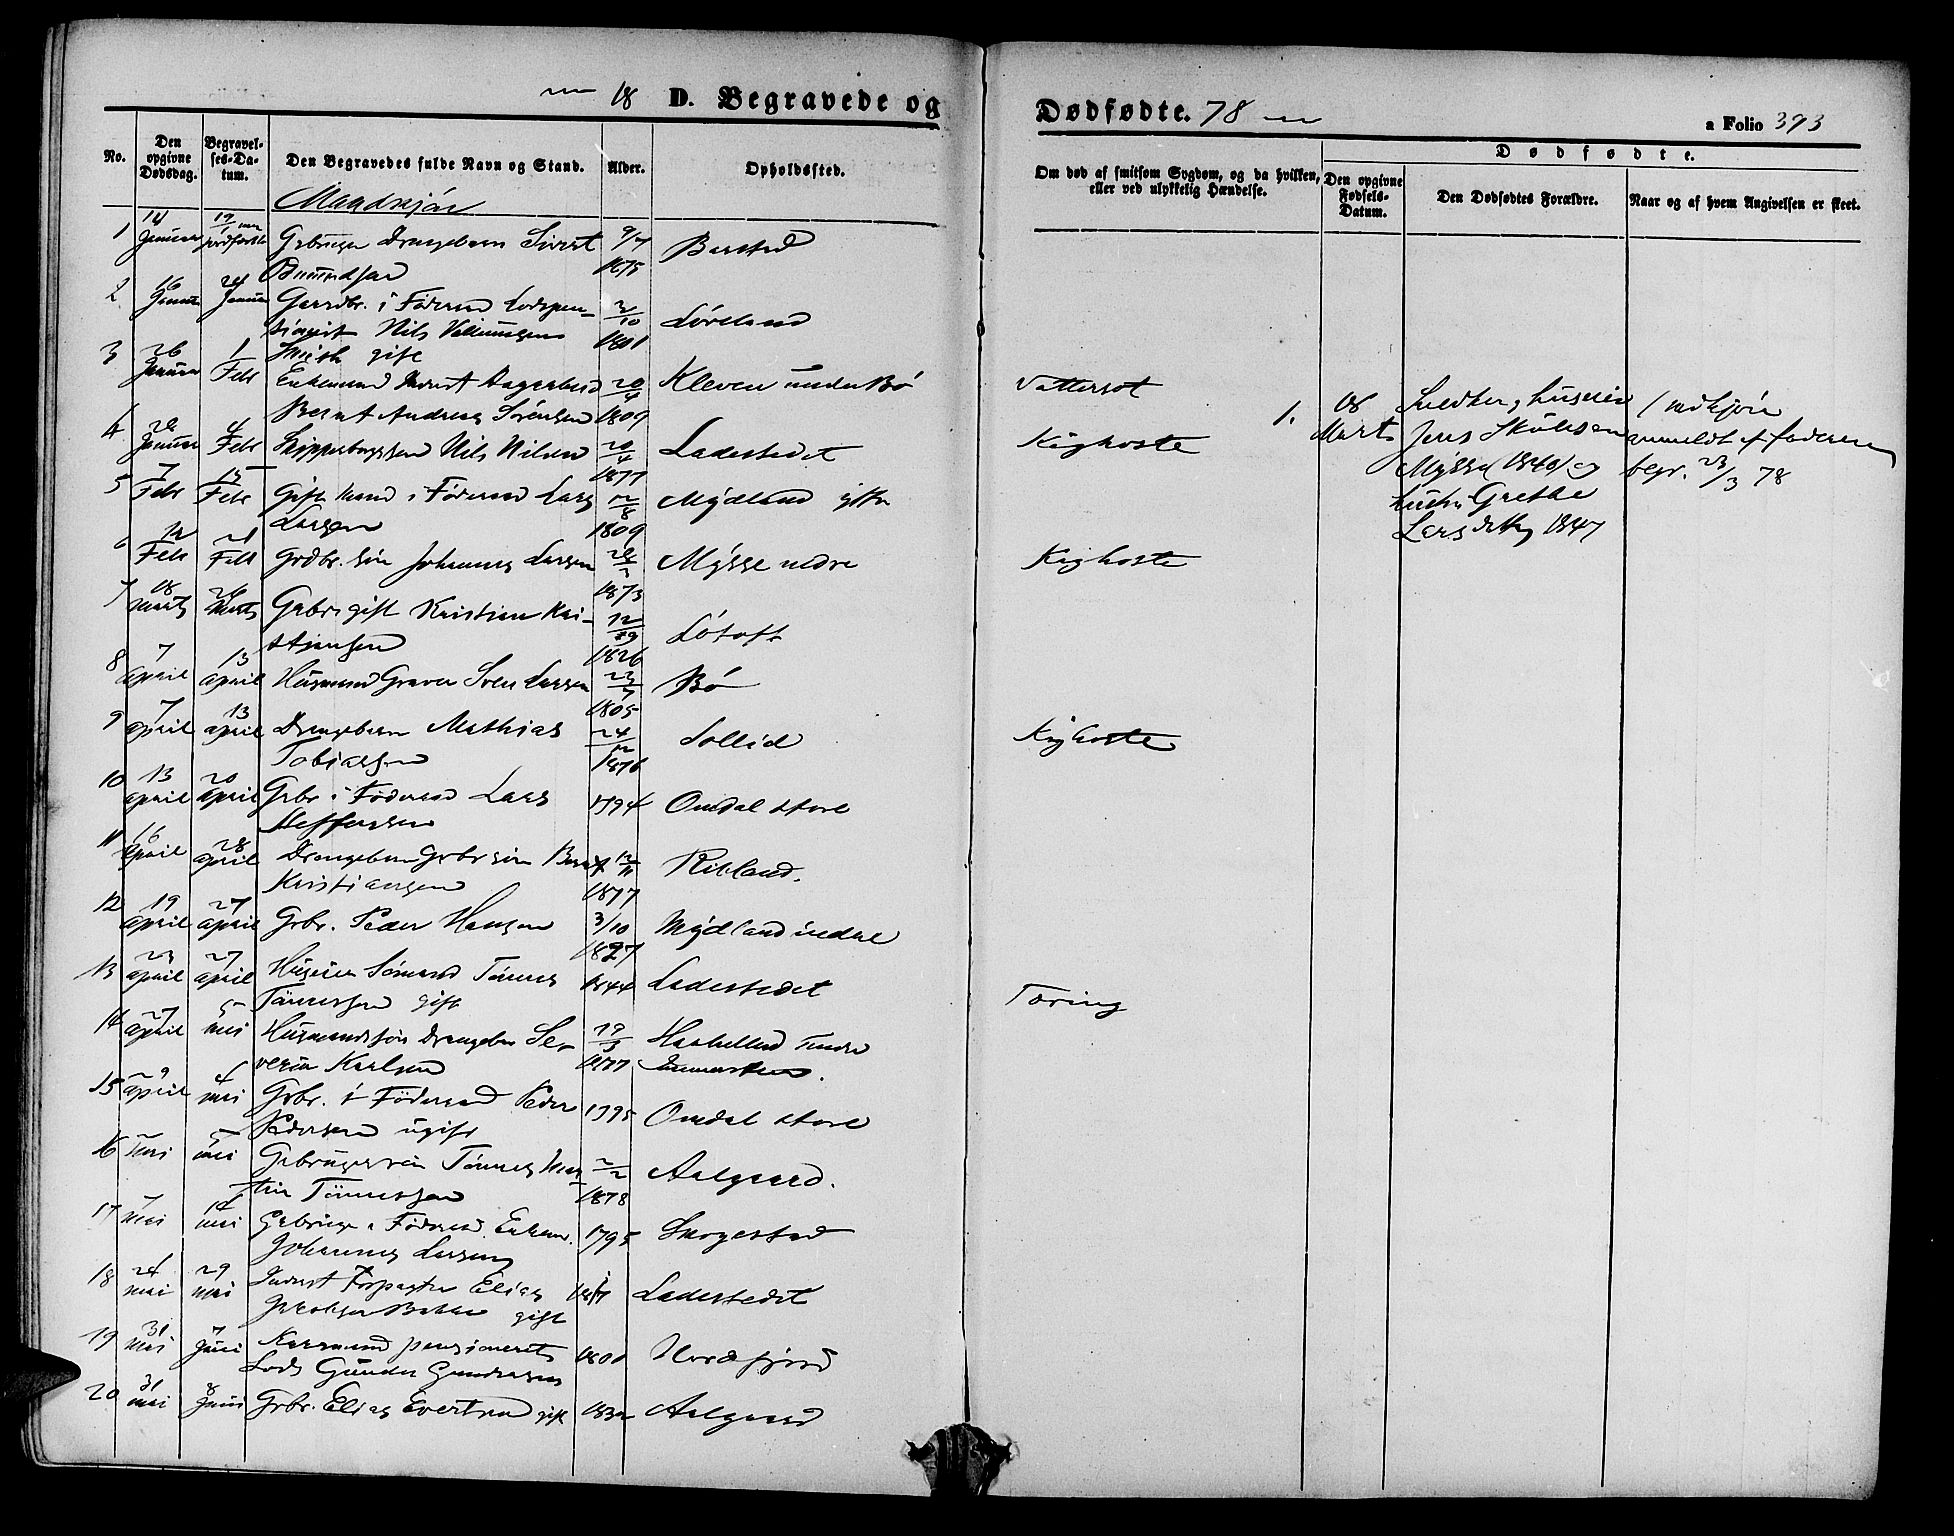 18 D. Begravede og Dødfødte. 78
a Folio 393
No.
Den opgivne Dødsdag.
Begravelses-Datum.
Den Begravedes fulde Navn og Stand.
Alder.
Opholdssted.
Om død af smitsom Sygdom, og da hvilken, eller ved ulykkelig Hændelse.
Dødfødte.
Den opgivne Fødsels-Datum.
Den Dødfødtes Forældre.
Naar og af hvem Angivelsen er skeet.
Mandkjøn
1 14 Januar 19/1 Gbruger Drengebarn Sivert 9/7 Berstad
1875
2 16 Januar 24 Januar Gaardbr. i Føderaad Lodspen-
Nils Villumsen 1801 Løveland
3 26 Januar 1 Febr gift
Enkemand 20/4 Kleven under Bø Vattersot
Bernt Andreas Sørensen 1809
4 28 Januar 4 Febr Nils Nilsen 20/4 Ladestedet Kighoste
1877
5 7 Febr 15 Febr Gift Mand i Føderaad Lars Mydland
Larsen 1809
6 12 Febr 21 Febr Grdbr. søn Johannes Larsen Mysse nedre Kighoste
1873
7 18 Marts 26 Marts Gbr. gift Kristian Kri-
stjansen 1826 Løtoft
8 7 April 13 April Husmand Graver Sven Larsen Bø
1805
9 7 April 13 April Drengebarn Mathias 24/12 Sollid Kighoste
Tobiassen 1876
10 13 April 20 April Grbr i Føderaad Lars 1794 Omdal store
Steffensen
11 16 April 28 April Drengebarn Grbr søn Bernt 12/11 Ribland.
Kristiansen 1877
12 19 April 27 April Grbr. Peder Hansen 3/10 Mydland
1827
13 23 April 27 April Huseier Sømand Tønnes 1844 Ladestedet
Tønnessen gift
14 27 April 5 Mai Husmandssøn Drengebarn Se- 19/3
verin Karlsen 1877
Tæring
15 29 April 4 Mai Grbr. i Føderaad Peder 1795 Omdal store
Pedersen ugift
16 2 Mai 5 Mai Gbrugersøn Tønnes Mar- 2/2 Aalgaard.
tin Tønnessen 1878
17 7 Mai 14 Mai Gbruger i Føderaad. Enkem. 1795 Skogestad
Johannes Larsen
18 24 Mai 29 Mai Elias Ladestedet
Jakobsen Bakke gift
19 31 Mai 7 Juni pensioneret 1801 Nordfjord
Lods Gunder Gundersen
20 31 Mai 8 Juni Grbr. Elias Evertsen gift 1832 Aalgaard
1. 18 Marts
huseier
Jens
Mysse 1840 og
hustru Grethe
Larsdatter 1847
Mdkjøn
anmeldt af faderen
begr. 23/3 78